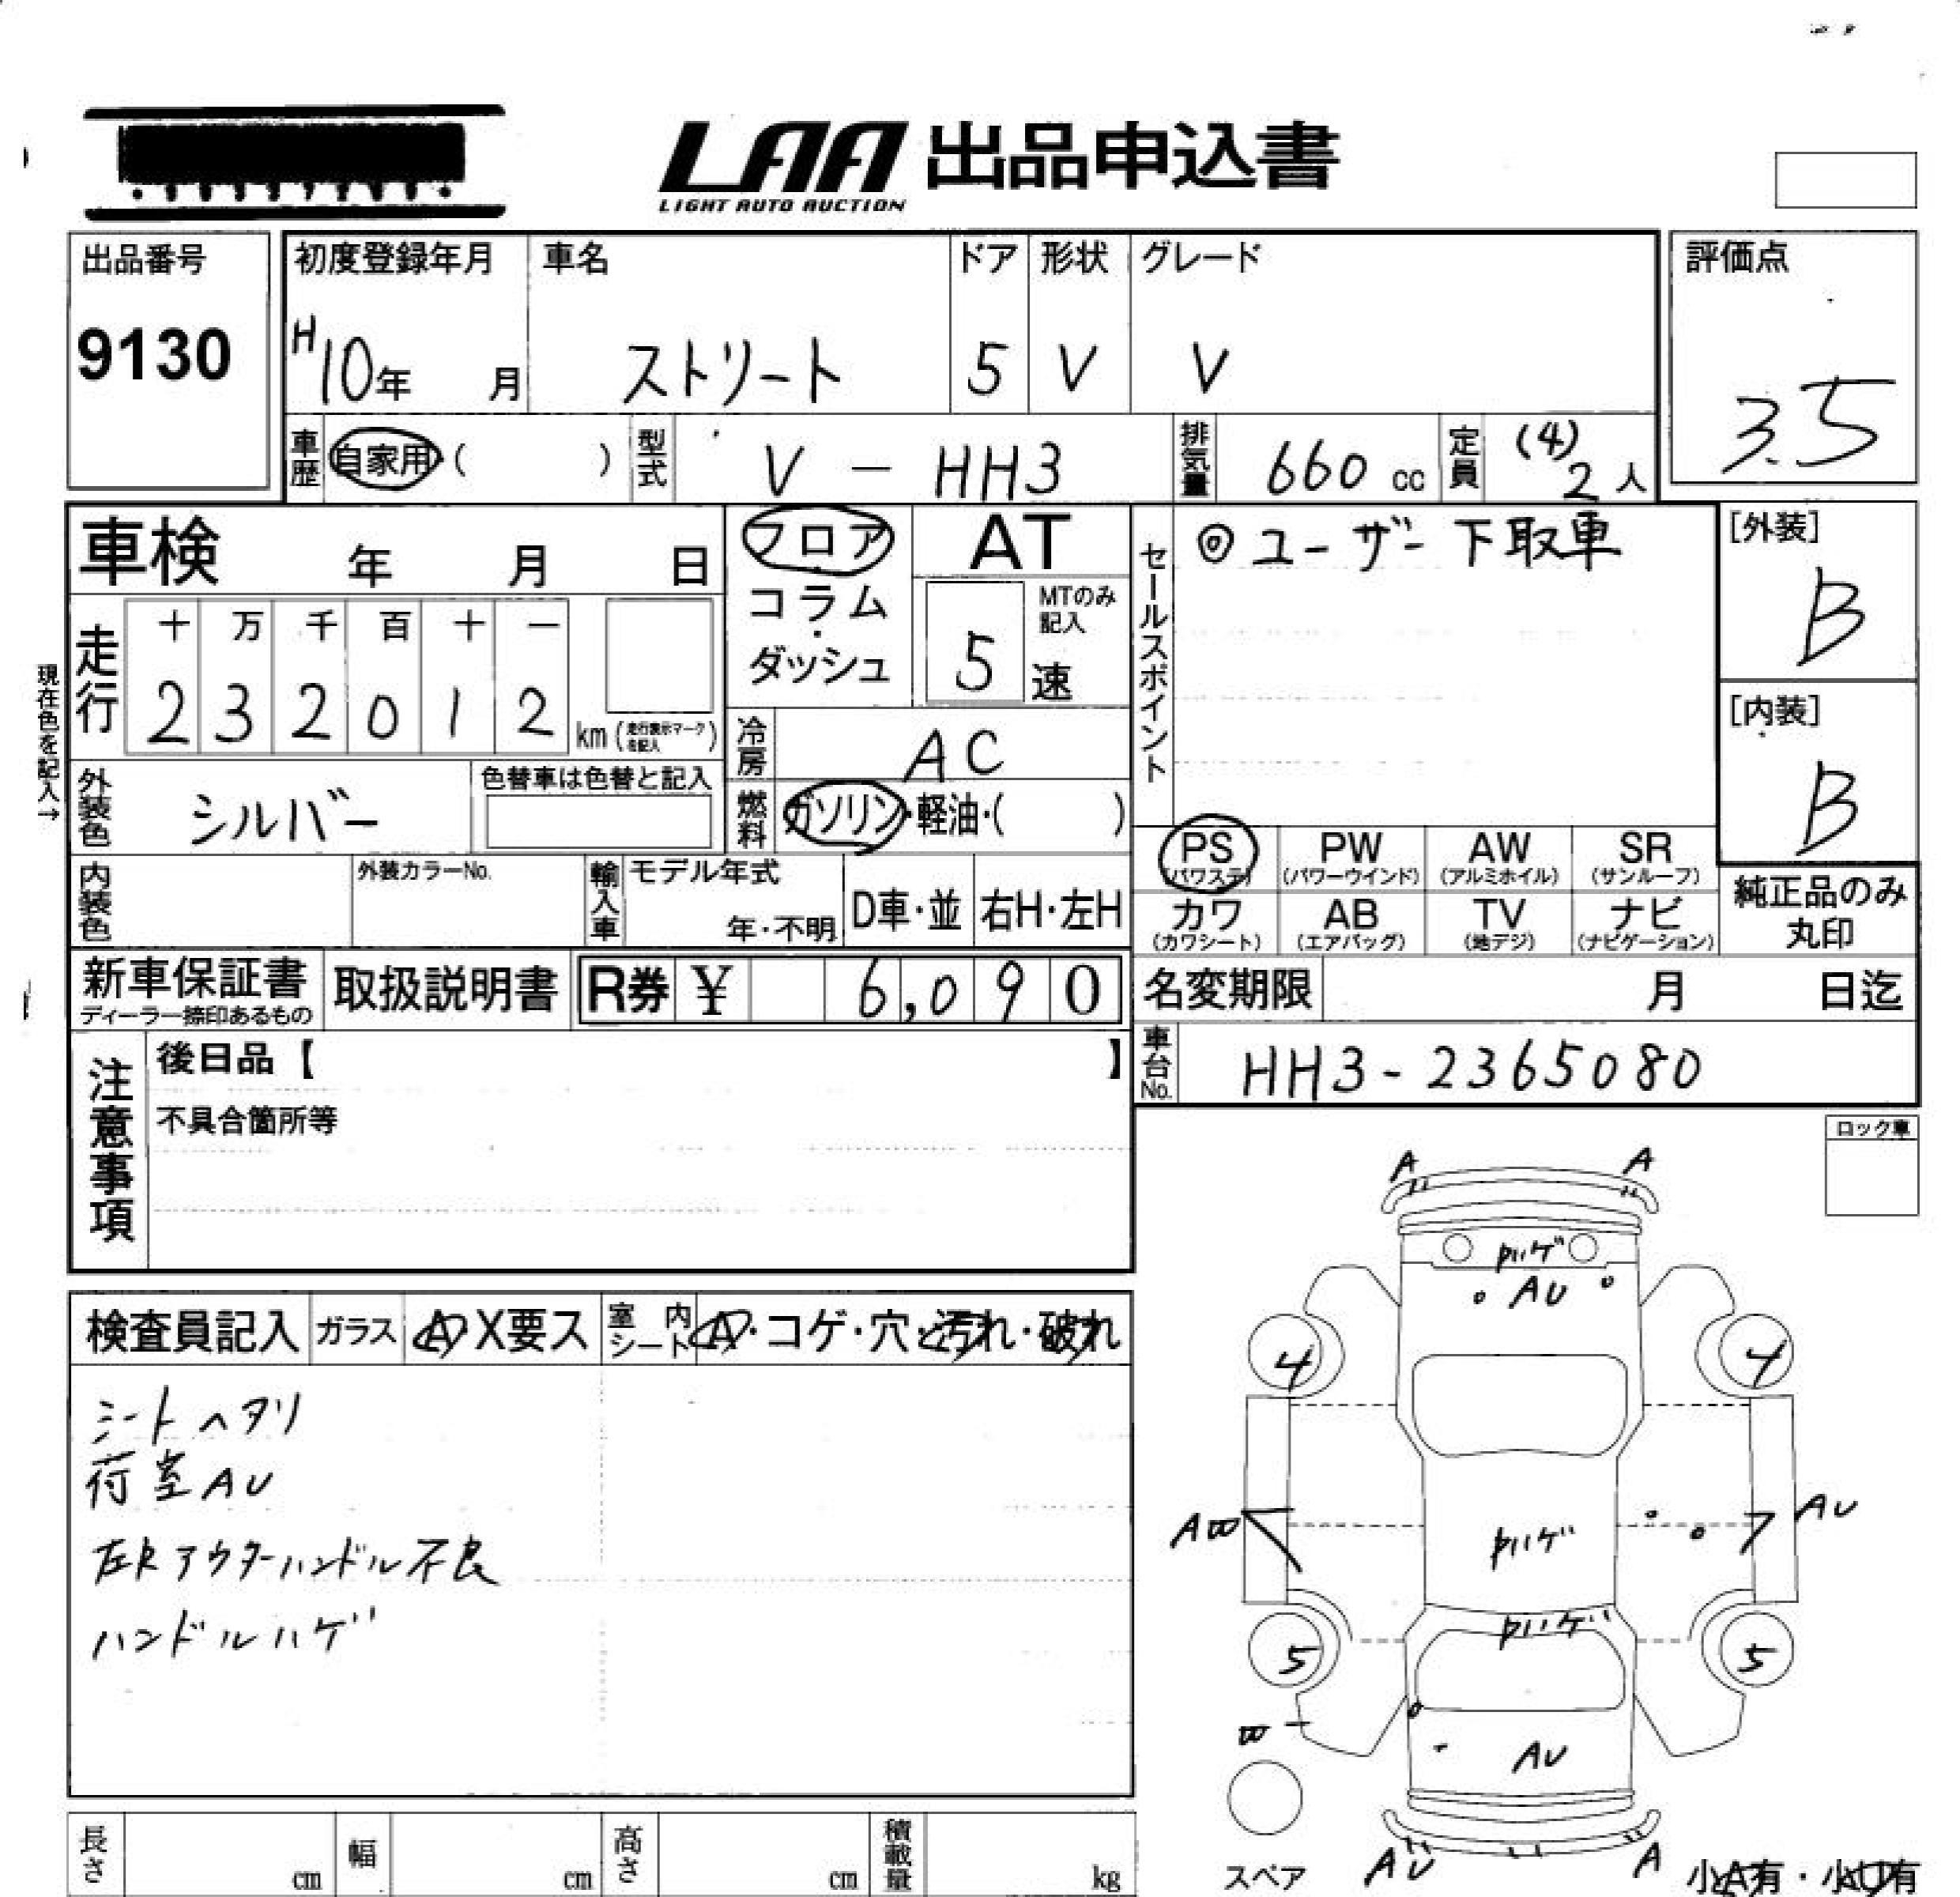 LAA 出品申込書
LIGHT AUTO AUCTION
出品番号
9130
初度登録年月
H10年 月
車名
ストリート
ドア
5
形状
V
グレード
V
評価点
3.5
車歴 自家用・( )
型式 V - HH3
排気量 660 cc
定員 (4) 2 人
車検 年 月 日
フロア
コラム
・
ダッシュ
AT
MTのみ
記入
5 速
セールスポイント
◎ユーザー下取車
[外装]
B
[内装]
B
現在色を記入→
走行
十 万 千 百 十 一
2 3 2 0 1 2
km (走行表示マーク
を記入)
冷房 AC
外装色 シルバー
色替車は色替と記入
燃料 ガソリン・軽油・( )
PS
(パワステ)
PW
(パワーウインド)
AW
(アルミホイル)
SR
(サンルーフ)
カワ
(カワシート)
AB
(エアバッグ)
TV
(地デジ)
ナビ
(ナビゲーション)
純正品のみ
丸印
内装色
外装カラーNo.
輸入車
モデル年式
年・不明
D車・並
右H・左H
新車保証書
ディーラー捺印あるもの
取扱説明書
R券 ¥ 6,090
名変期限 月 日迄
車台No. HH3-2365080
注意事項
後日品【 】
不具合箇所等
ロック車
検査員記入
ガラス A・X要ス
室内シート A・コゲ・穴・汚れ・破れ
シートヘタリ
荷室AU
左Rアウターハンドル不良
ハンドルハゲ
A A
Pハゲ
AU
4 4
AU
Pハゲ
Pハゲ
5 5
AU
スペア
AU A
小A有・小U有
長さ cm
幅 cm
高さ cm
積載量 kg